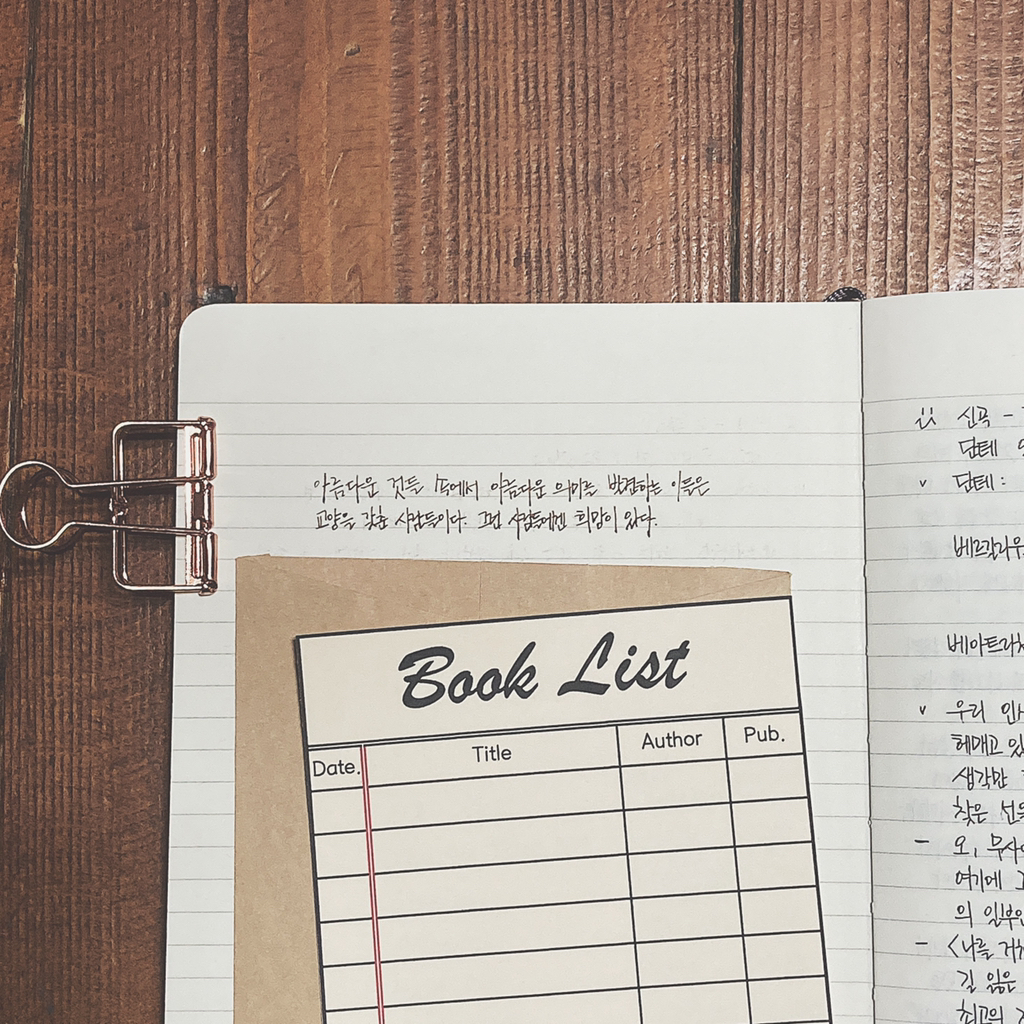 아름다운 것들 속에서 아름다운 의미를 발견하는 이들은
교양을 갖춘 사람들이다. 그런 사람들에겐 희망이 있다.
Book List
Date. Title Author Pub.
신곡 -
단테
단테:
베아트리체
우리
헤매고
생각만
찾은
오,
여기에
의
<나를
길 잃은
최고의